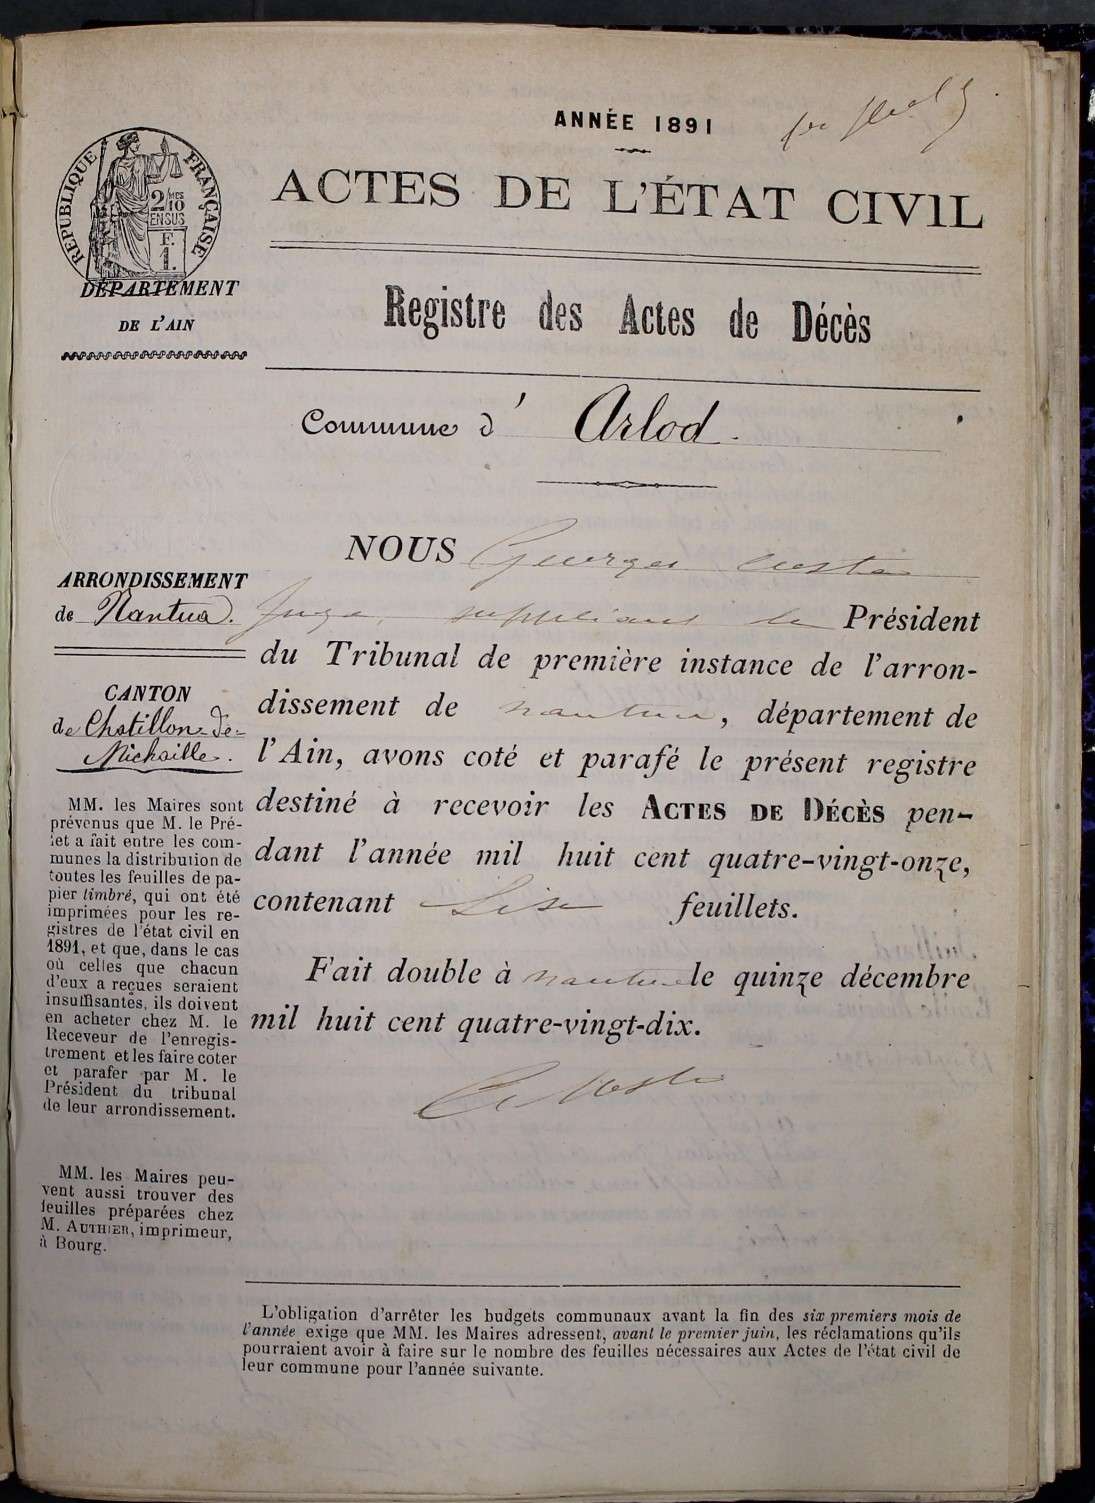 ANNÉE 1891
ACTES DE L'ÉTAT CIVIL
RÉPUBLIQUE FRANÇAISE
2/10 MES
EN SUS
F.
1.
DÉPARTEMENT
DE L'AIN
Registre des Actes de Décès
Commune d' Arlod.
ARRONDISSEMENT
de Nantua.
CANTON
de Chatillon-de-
Michaille.
MM. les Maires sont
prévenus que M. le Pré-
fet a fait entre les com-
munes la distribution de
toutes les feuilles de pa-
pier timbré, qui ont été
imprimées pour les re-
gistres de l'état civil en
1891, et que, dans le cas
où celles que chacun
d'eux a reçues seraient
insuffisantes, ils doivent
en acheter chez M. le
Receveur de l'enregis-
trement et les faire coter
et parafer par M. le
Président du tribunal
de leur arrondissement.
MM. les Maires peu-
vent aussi trouver des
feuilles préparées chez
M. AUTHIER, imprimeur,
à Bourg.
NOUS Georges
Juge suppléant le Président
du Tribunal de première instance de l'arron-
dissement de nantua, département de
l'Ain, avons coté et parafé le présent registre
destiné à recevoir les ACTES DE DÉCÈS pen-
dant l'année mil huit cent quatre-vingt-onze,
contenant feuillets.
Fait double à nantua le quinze décembre
mil huit cent quatre-vingt-dix.
L'obligation d'arrêter les budgets communaux avant la fin des six premiers mois de
l'année exige que MM. les Maires adressent, avant le premier juin, les réclamations qu'ils
pourraient avoir à faire sur le nombre des feuilles nécessaires aux Actes de l'état civil de
leur commune pour l'année suivante.